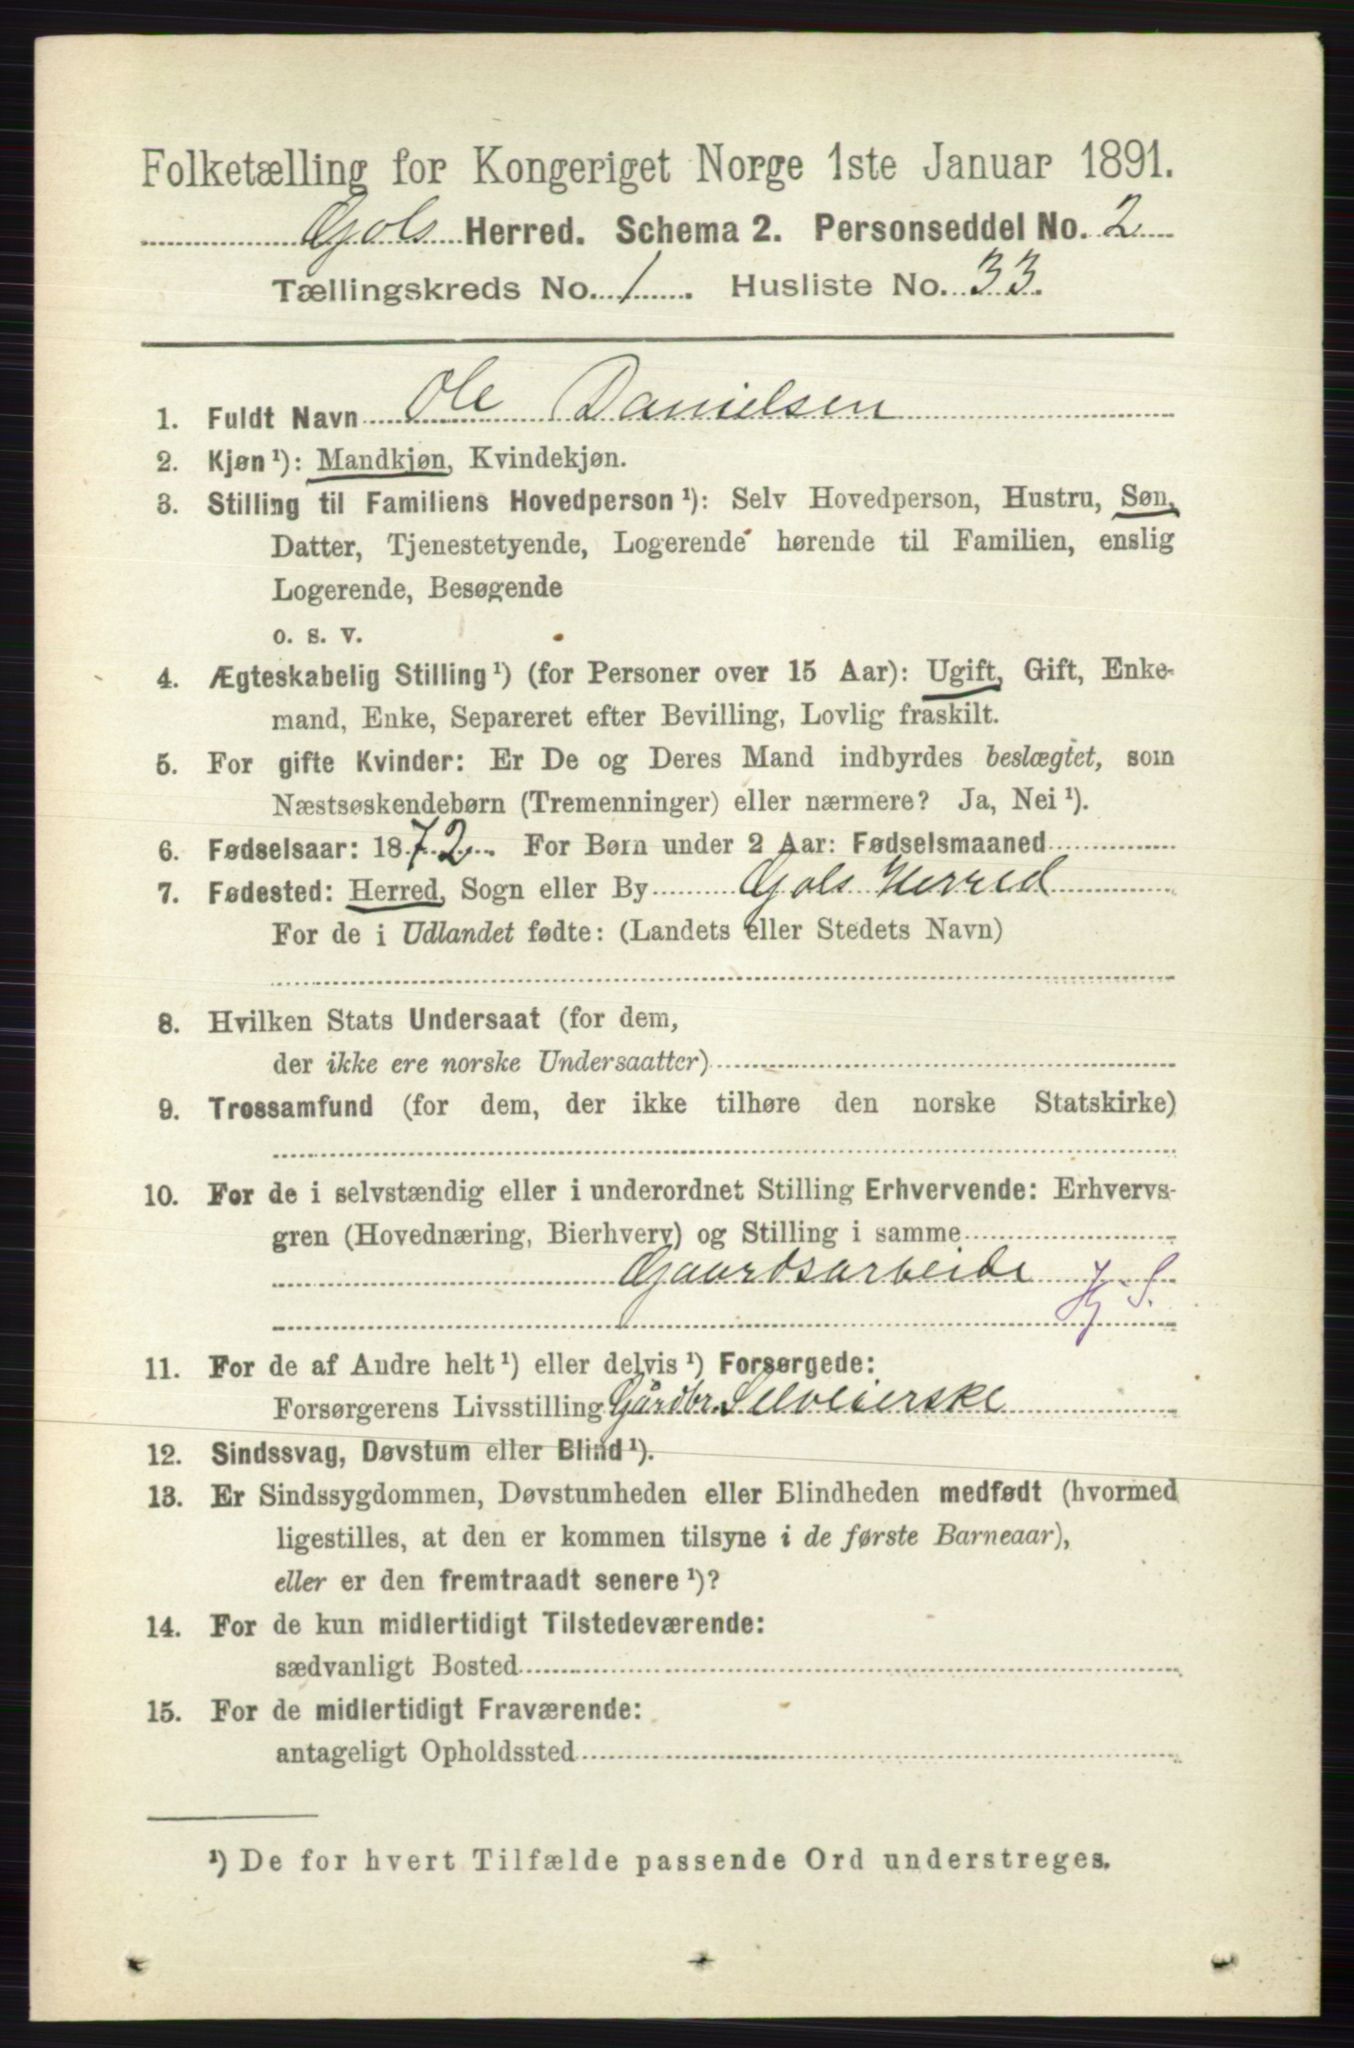 Folketælling for Kongeriget Norge 1ste Januar 1891.
Gols Herred. Schema 2. Personseddel No. 2
Tællingskreds No. 1. Husliste No. 33.
1. Fuldt Navn Ole Danielsen
2. Kjøn¹): Mandkjøn, Kvindekjøn.
3. Stilling til Familiens Hovedperson¹): Selv Hovedperson, Hustru, Søn,
Datter, Tjenestetyende, Logerende hørende til Familien, enslig
Logerende, Besøgende
o. s. v.
4. Ægteskabelig Stilling¹) (for Personer over 15 Aar): Ugift, Gift, Enke-
mand, Enke, Separeret efter Bevilling, Lovlig fraskilt.
5. For gifte Kvinder: Er De og Deres Mand indbyrdes beslægtet, som
Næstsøskendebørn (Tremenninger) eller nærmere? Ja, Nei¹).
6. Fødselsaar: 1872. For Børn under 2 Aar: Fødselsmaaned
7. Fødested: Herred, Sogn eller By Gols Herred
For de i Udlandet fødte: (Landets eller Stedets Navn)
8. Hvilken Stats Undersaat (for dem,
der ikke ere norske Undersaatter)
9. Trossamfund (for dem, der ikke tilhøre den norske Statskirke)
10. For de i selvstændig eller i underordnet Stilling Erhvervende: Erhvervs-
gren (Hovednæring, Bierhverv) og Stilling i samme
Gaardsarbeide
Hj. S.
11. For de af Andre helt¹) eller delvis¹) Forsørgede:
Forsørgerens Livsstilling Gårdbr. Selveierske
12. Sindssvag, Døvstum eller Blind¹).
13. Er Sindssygdommen, Døvstumheden eller Blindheden medfødt (hvormed
ligestilles, at den er kommen tilsyne i de første Barneaar),
eller er den fremtraadt senere¹)?
14. For de kun midlertidigt Tilstedeværende:
sædvanligt Bosted
15. For de midlertidigt Fraværende:
antageligt Opholdssted
¹) De for hvert Tilfælde passende Ord understreges.